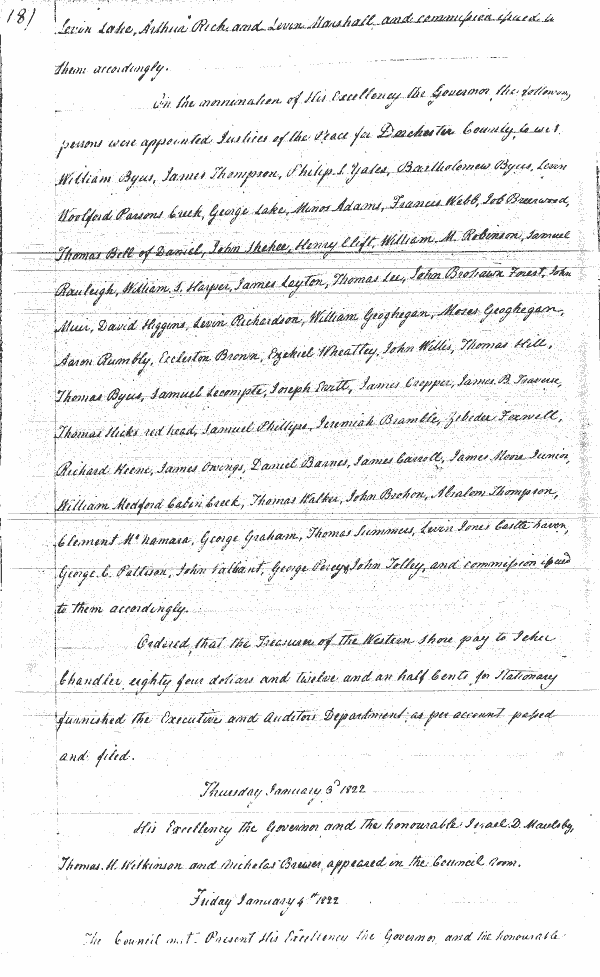 181
Levin Lake, Arthur Rich and Levin Marshall, and commission issued to
them accordingly.
On the nomination of His Excellency the Governor, the following
persons were appointed Justices of the Peace for Dorchester County, to wit.
William Byus, James Thompson, Philip L. Yates, Bartholomew Byus, Levin
Woolford Parsons Creek, George Lake, Minos Adams, Francis Webb, Job Breerwood,
Thomas Bell of Daniel, John Shehee, Henry Clift, William M. Robinson, Samuel
Rauleigh, William S. Harper, James Layton, Thomas Lee, John Brohawn Forest, John
Muir, David Higgins, Levin Richardson, William Geoghegan, Moses Geoghegan,
Aaron Rumbly, Eccleston Brown, Ezekiel Wheatley, John Willis, Thomas Hill,
Thomas Byus, Samuel Lecompte, Joseph Ewtt, James Crepper, James B. Travers,
Thomas Hicks red head, Samuel Phillips, Jeremiah Bramble, Zebedee Foxwell,
Richard Keene, James Owings, Daniel Barnes, James Carroll, James Moore Junior,
William Medford Cabin Creek, Thomas Walker, John Brohon, Absalom Thompson,
Clement McNamara, George Graham, Thomas Summers, Levin Jones Castle haven,
George C. Pattison, John Valliant, George Percy & John Tolley, and commission issued
to them accordingly.
Ordered, that the Treasurer of the Western Shore pay to Jehu
Chandler eighty four dollars and twelve and an half Cents for Stationary
furnished the Executive and Auditors Department, as per account passed
and filed.
Thursday January 3d 1822
His Excellency the Governor and the honourable Israel D. Maulsby,
Thomas H. Wilkinson and Nicholas Brewer, appeared in the Council room.
Friday January 4th 1822
The Council met. Present His Excellency the Governor and the honourable